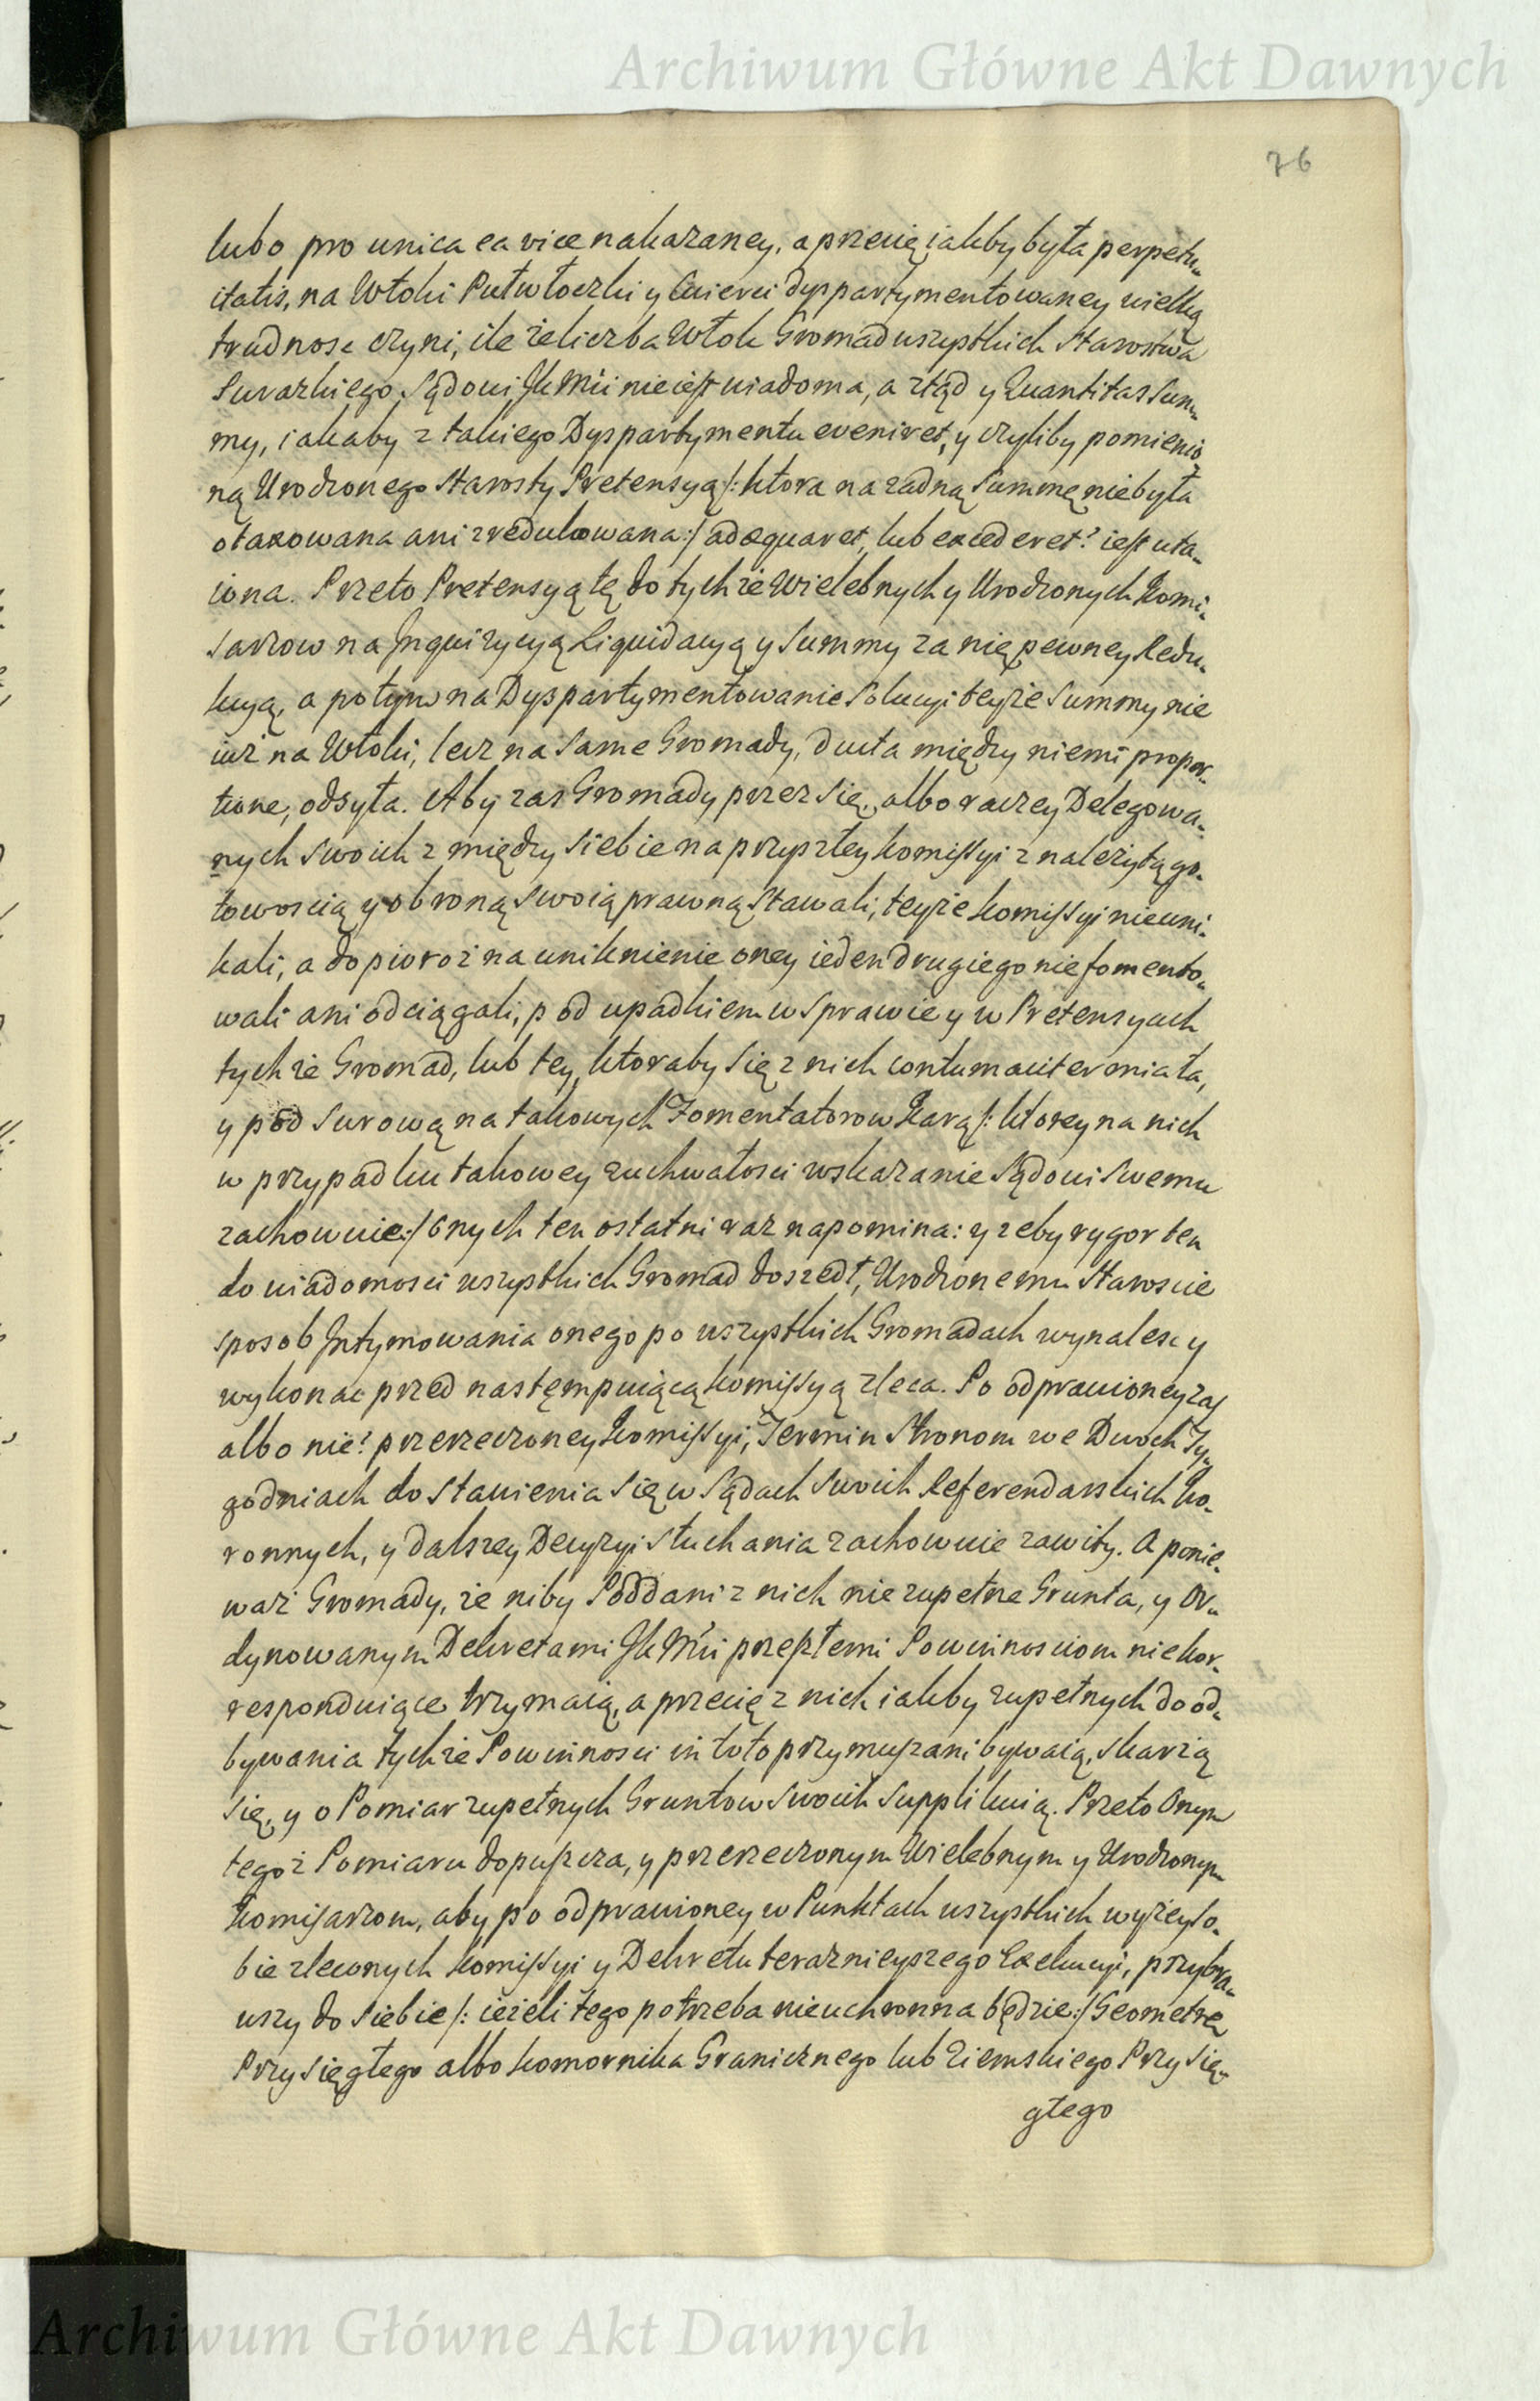 Archiwum Główne Akt Dawnych
76
lubo pro unica ea vice nakazaney, a przecię iakby była perpetu-
itatis, na Włoki Putwłoczki y Cwierci dyspartymentowaney wielką
trudnosc czyni, ile że liczba Włok Gromad wszystkich Starostwa
Surazkiego Sądowi JK Mci nie iest wiadoma, a ztąd y Quantitas Sum-
my, iakaby z takiego Dyspartymentu eveniret, y czyliby pomienio-
ną Urodzonego Starosty Pretensyą /: ktora na zadną Summę niebyła
otaxowana ani zredukowana :/ adæquaret, lub excederet? iest uta-
iona. Przeto Pretensyą tę do tychże Wielebnych y Urodzonych Komi-
sarzow na Jnquizycyą Liquidacyą y Summy za nię pewney Redu-
kcyą, a potym na Dyspartymentowanie Solucyi teyże Summy nie
iuż na Włoki, lecz na same Gromady, ducta między niemi propor-
tione, odsyła. Aby zas Gromady przez się, albo raczey Delegowa-
nych swoich z między siebie na przyszłey Komissyi z należytą go-
towoscią y obroną swoią prawną stawali, teyże Komissyi nieuni-
kali, a dopieroż na uniknienie oney ieden drugiego nie fomento-
wali ani odciągali, pod upadkiem w Sprawie y w Pretensyach
tychże Gromad, lub tey, ktoraby się z nich contumaciter miała,
y pod surową na takowych Fomentatorow Karą /: ktorey na nich
w przypadku takowey zuchwałosci wskazanie Sądowi swemu
zachowuie :/ onych ten ostatni raz napomina: y zeby rygor ten
do wiadomosci wszystkich Gromad doszedł, Urodzonemu Staroscie
sposob Jntymowania onego po wszystkich Gromadach wynalesc y
wykonac przed następuiącą Komissyą zleca. Po odprawioney zas
albo nie? przerzeczoney Komissyi, Termin Stronom we Dwoch Ty-
godniach do stawienia się w Sądach swoich Referendarskich Ko-
ronnych, y dalszey Decyzyi słuchania zachowuie zawity. A ponie-
waż Gromady, że niby Poddani z nich nie zupełne Grunta, y Or-
dynowanym Dekretami JK Mci przeszłemi Powinnosciom niekor-
responduiące trzymaią, a przecię z nich iakby zupełnych do od-
bywania tychże Powinnosci in toto przymuszani bywaią, skarżą
się, y o Pomiar zupełnych Gruntow swoich supplikuią. Przeto Onym
tegoż Pomiaru dopuszcza, y przerzeczonym Wielebnym y Urodzonym
Komisarzom, aby po odprawioney w Punktach wszystkich wyżey so-
bie zleconych Komissyi y Dekretu teraznieyszego Exekucyi, przybra-
wszy do siebie /: ieżeli tego potrzeba nieuchronna będzie :/ Geometrę
Przysięgłego albo Komornika Granicznego lub Ziemskiego Przysię-
głego
Archiwum Główne Akt Dawnych